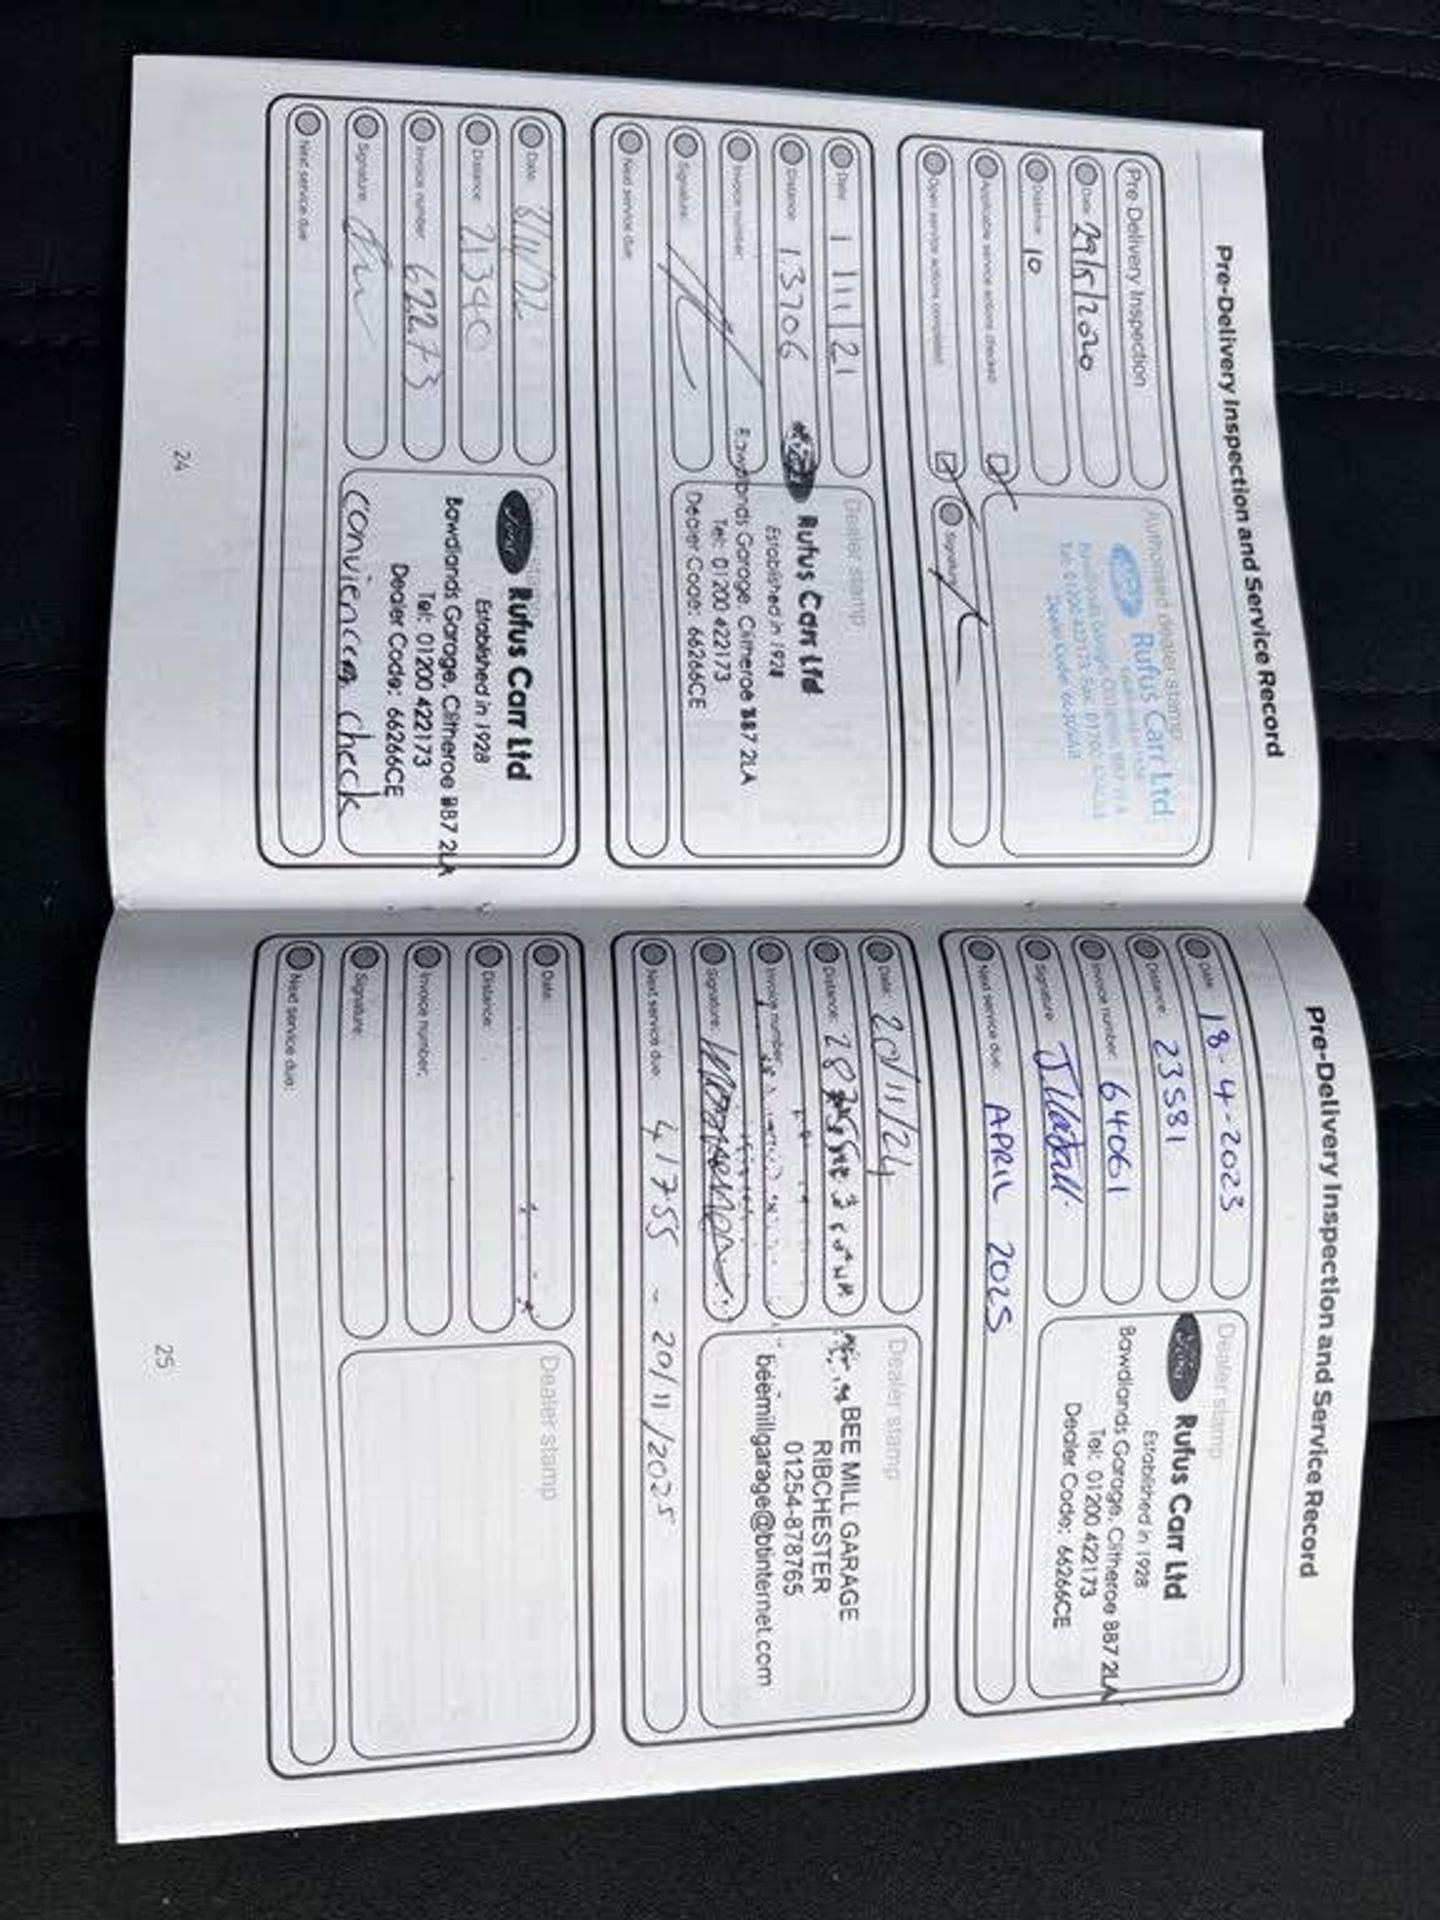 Pre-Delivery Inspection and Service Record
Pre Delivery Inspection
Date: 29/5/2020
Distance: 10
Applicable service actions checked:
Open service actions completed:
Authorised dealer stamp
Rufus Carr Ltd
Signature:
Date: 1 11/21
Distance: 13706
Invoice number:
Signature:
Next service due:
Dealer stamp
Rufus Carr Ltd
Established in 1928
Bawdlands Garage, Clitheroe BB7 2LA
Tel: 01200 422173
Dealer Code: 66266CE
Date: 8/11/22
Distance: 21340
Invoice number: 62273
Signature:
Next service due:
Dealer stamp
Ford
Rufus Carr Ltd
Established in 1928
Bawdlands Garage, Clitheroe BB7 2LA
Tel: 01200 422173
Dealer Code: 66266CE
convienccen check
24
Pre-Delivery Inspection and Service Record
Date: 18-4-2023
Distance: 23581
Invoice number: 64061
Signature:
Next service due: APRIL 2025
Dealer stamp
Ford
Rufus Carr Ltd
Established in 1928
Bawdlands Garage, Clitheroe BB7 2LA
Tel: 01200 422173
Dealer Code: 66266CE
Date: 20/11/24
Distance:
Invoice number:
Signature:
Next service due: 41755 - 20/11/2025
Dealer stamp
BEE MILL GARAGE
RIBCHESTER
01254-878765
beemillgarage@btinternet.com
Date:
Distance:
Invoice number:
Signature:
Next service due:
Dealer stamp
25